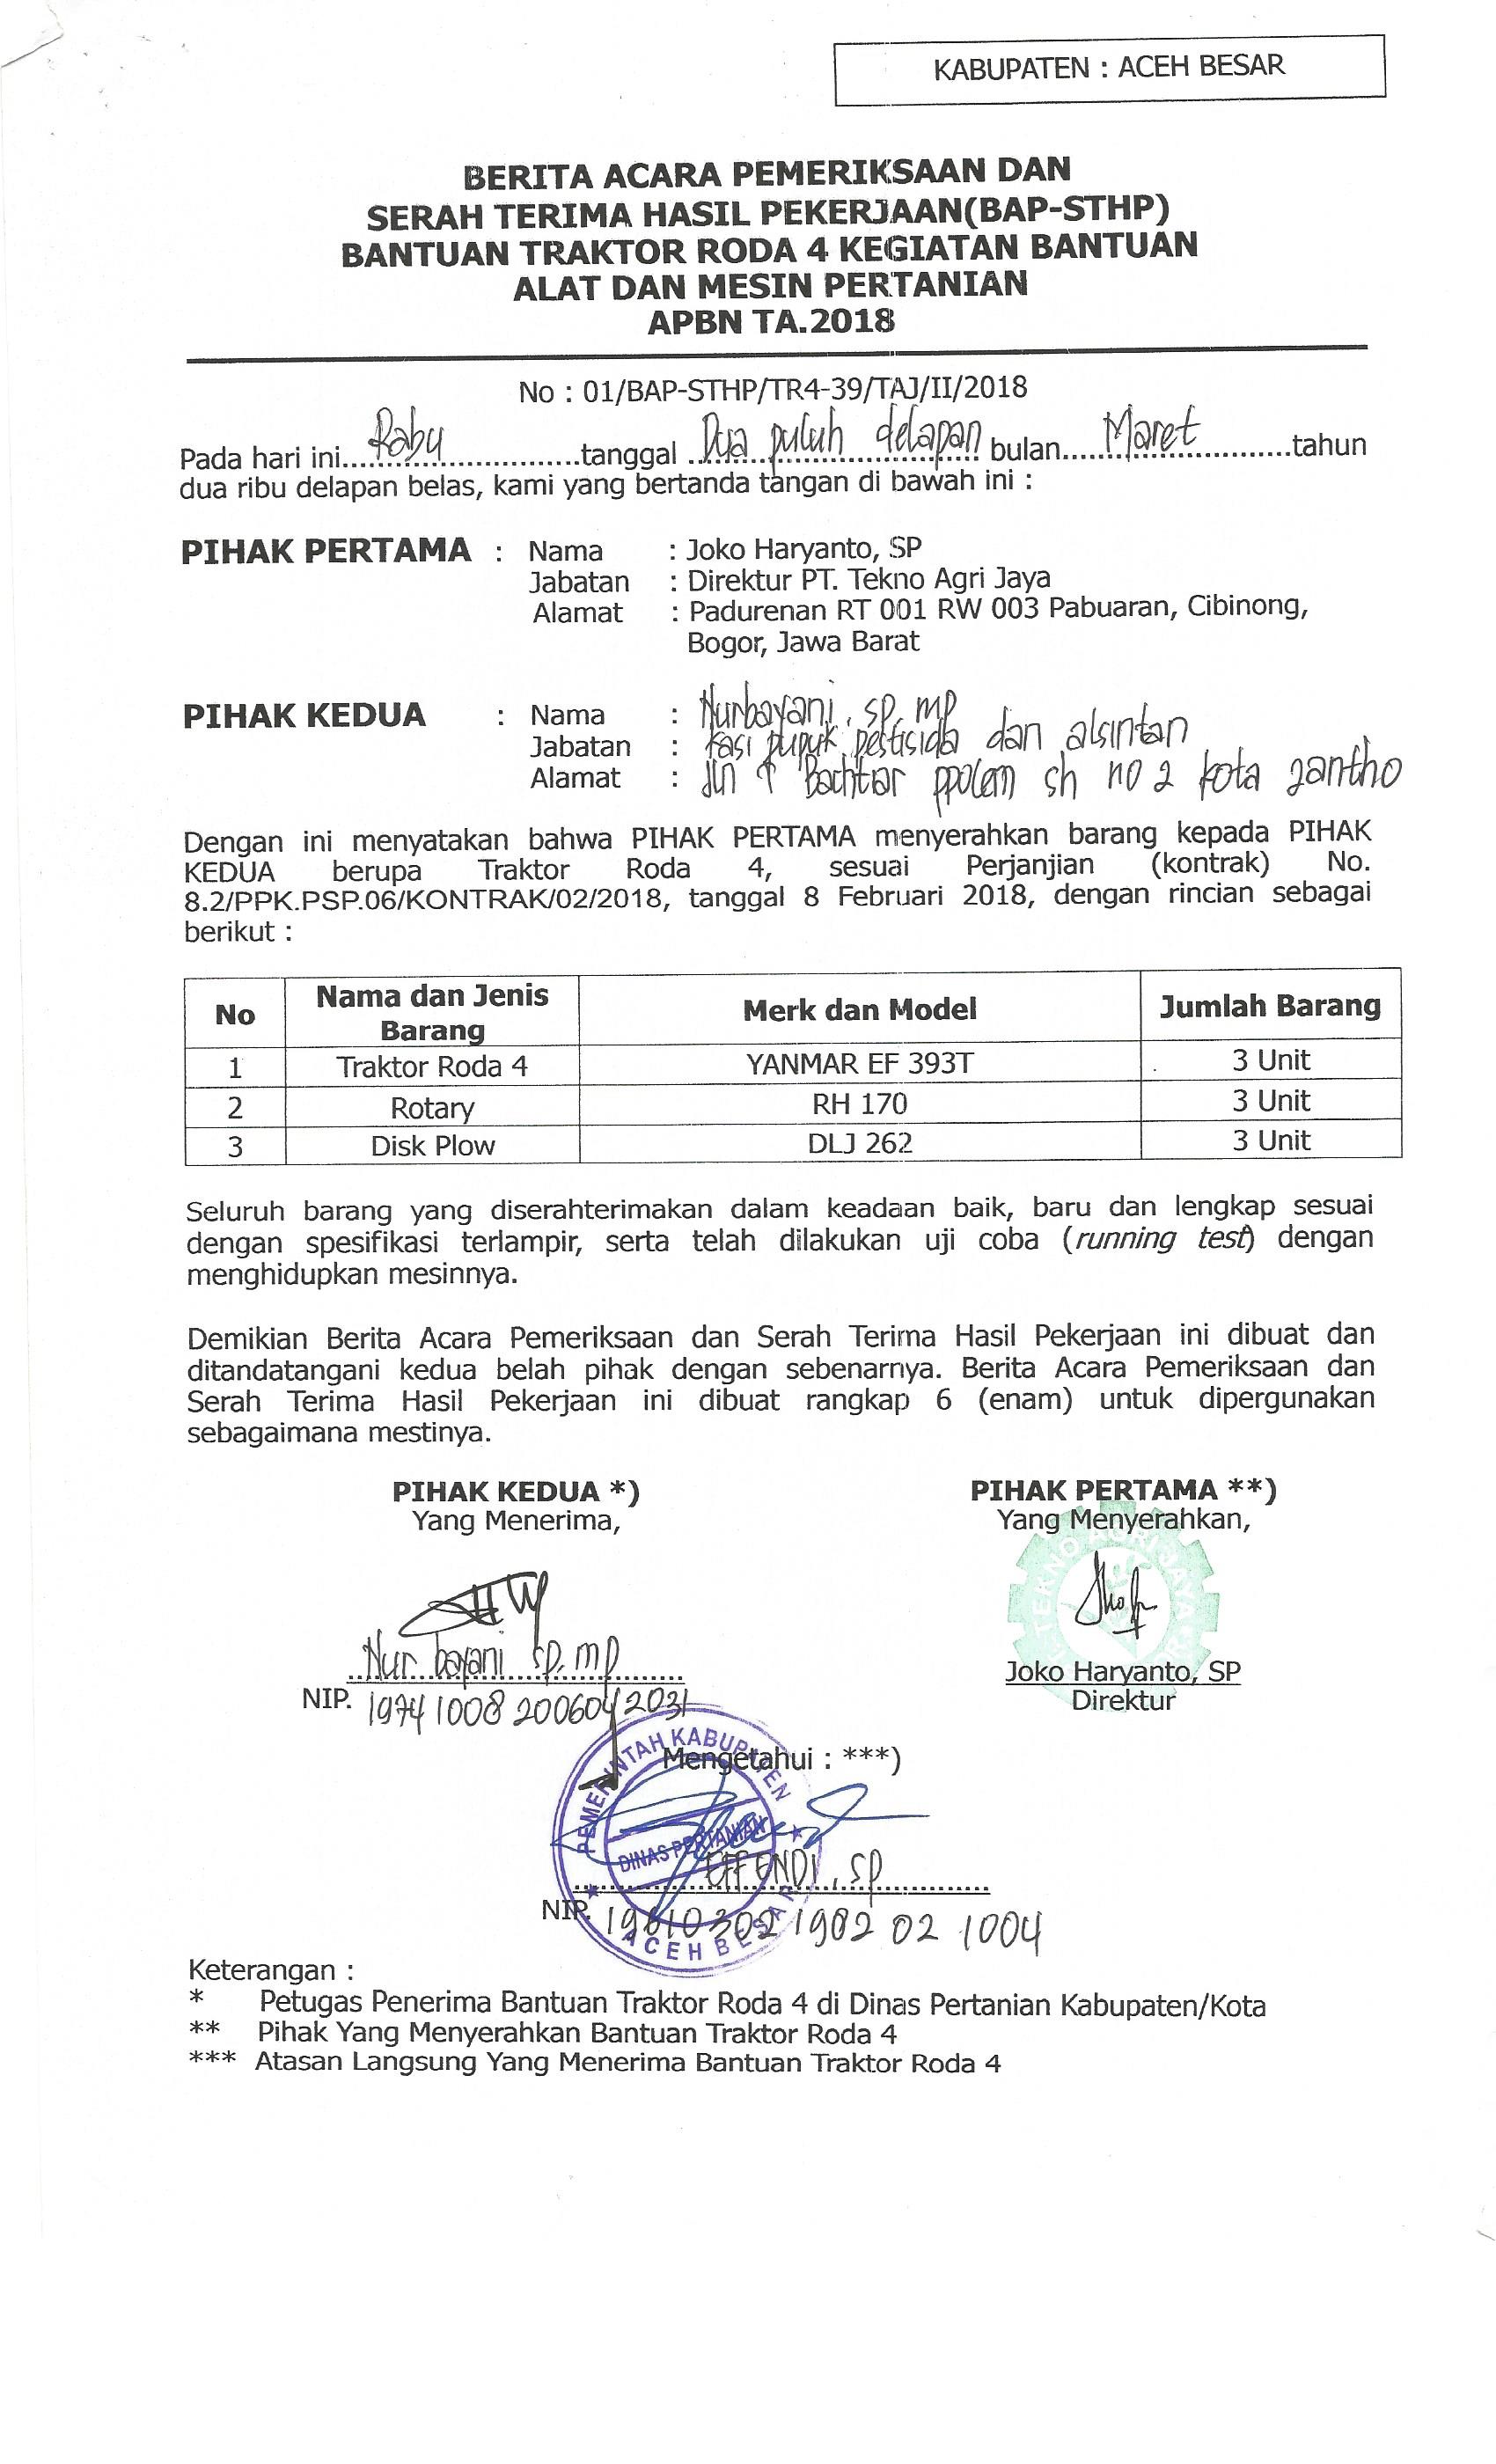 KABUPATEN : ACEH BESAR
BERITA ACARA PEMERIKSAAN DAN
SERAH TERIMA HASIL PEKERJAAN(BAP-STHP)
BANTUAN TRAKTOR RODA 4 KEGIATAN BANTUAN
ALAT DAN MESIN PERTANIAN
APBN TA.2018
No : 01/BAP-STHP/TR4-39/TAJ/II/2018
Pada hari ini Rabu tanggal Dua puluh delapan bulan Maret tahun
dua ribu delapan belas, kami yang bertanda tangan di bawah ini :
PIHAK PERTAMA : Nama : Joko Haryanto, SP
Jabatan : Direktur PT. Tekno Agri Jaya
Alamat : Padurenan RT 001 RW 003 Pabuaran, Cibinong,
Bogor, Jawa Barat
PIHAK KEDUA : Nama : Nurbayani, sp, mp
Jabatan : kasi pupuk pestisida dan alsintan
Alamat : Jln T Bachtiar ppolem sh no 2 kota jantho
Dengan ini menyatakan bahwa PIHAK PERTAMA menyerahkan barang kepada PIHAK
KEDUA berupa Traktor Roda 4, sesuai Perjanjian (kontrak) No.
8.2/PPK.PSP.06/KONTRAK/02/2018, tanggal 8 Februari 2018, dengan rincian sebagai
berikut :
No Nama dan Jenis Barang Merk dan Model Jumlah Barang
1 Traktor Roda 4 YANMAR EF 393T 3 Unit
2 Rotary RH 170 3 Unit
3 Disk Plow DLJ 262 3 Unit
Seluruh barang yang diserahterimakan dalam keadaan baik, baru dan lengkap sesuai
dengan spesifikasi terlampir, serta telah dilakukan uji coba (running test) dengan
menghidupkan mesinnya.
Demikian Berita Acara Pemeriksaan dan Serah Terima Hasil Pekerjaan ini dibuat dan
ditandatangani kedua belah pihak dengan sebenarnya. Berita Acara Pemeriksaan dan
Serah Terima Hasil Pekerjaan ini dibuat rangkap 6 (enam) untuk dipergunakan
sebagaimana mestinya.
PIHAK KEDUA *) PIHAK PERTAMA **)
Yang Menerima, Yang Menyerahkan,
TEKNO AGRI JAYA
Nur bayani sp, mp
Joko Haryanto, SP
NIP. 19741008 200604 2031
Direktur
Mengetahui : ***)
PEMERINTAH KABUPATEN
DINAS PERTANIAN
ACEH BESAR
EFFENDI, SP
NIP. 19610302 1982 02 1004
Keterangan :
* Petugas Penerima Bantuan Traktor Roda 4 di Dinas Pertanian Kabupaten/Kota
** Pihak Yang Menyerahkan Bantuan Traktor Roda 4
*** Atasan Langsung Yang Menerima Bantuan Traktor Roda 4